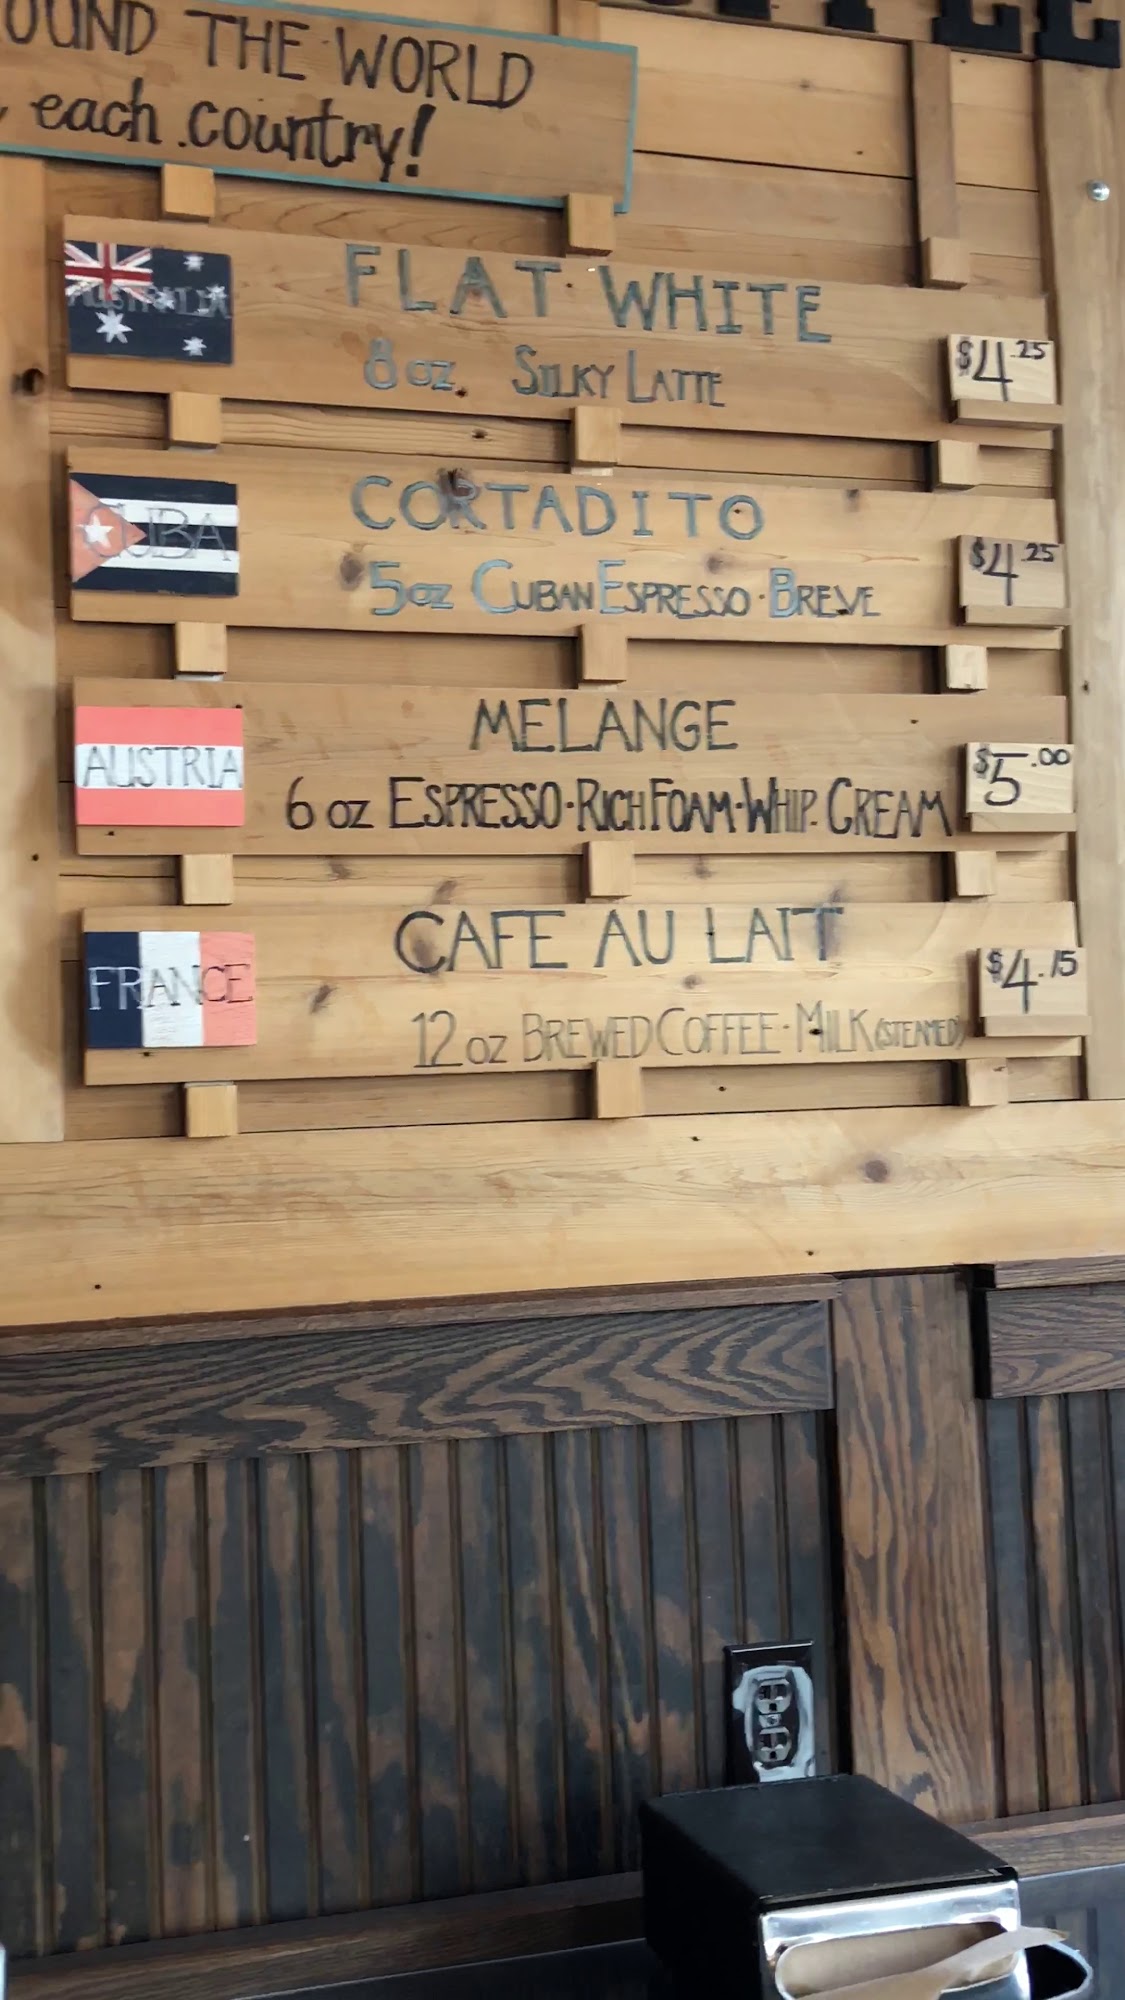 OUND THE WORLD
each country!
AUSTRALIA
FLAT WHITE
8 oz. SILKY LATTE
$4.25
CUBA
CORTADITO
5oz CUBAN ESPRESSO · BREVE
$4.25
AUSTRIA
MELANGE
6 oz ESPRESSO · RICH FOAM · WHIP. CREAM
$5.00
FRANCE
CAFE AU LAIT
12 oz BREWED COFFEE · MILK (STEAMED)
$4.15